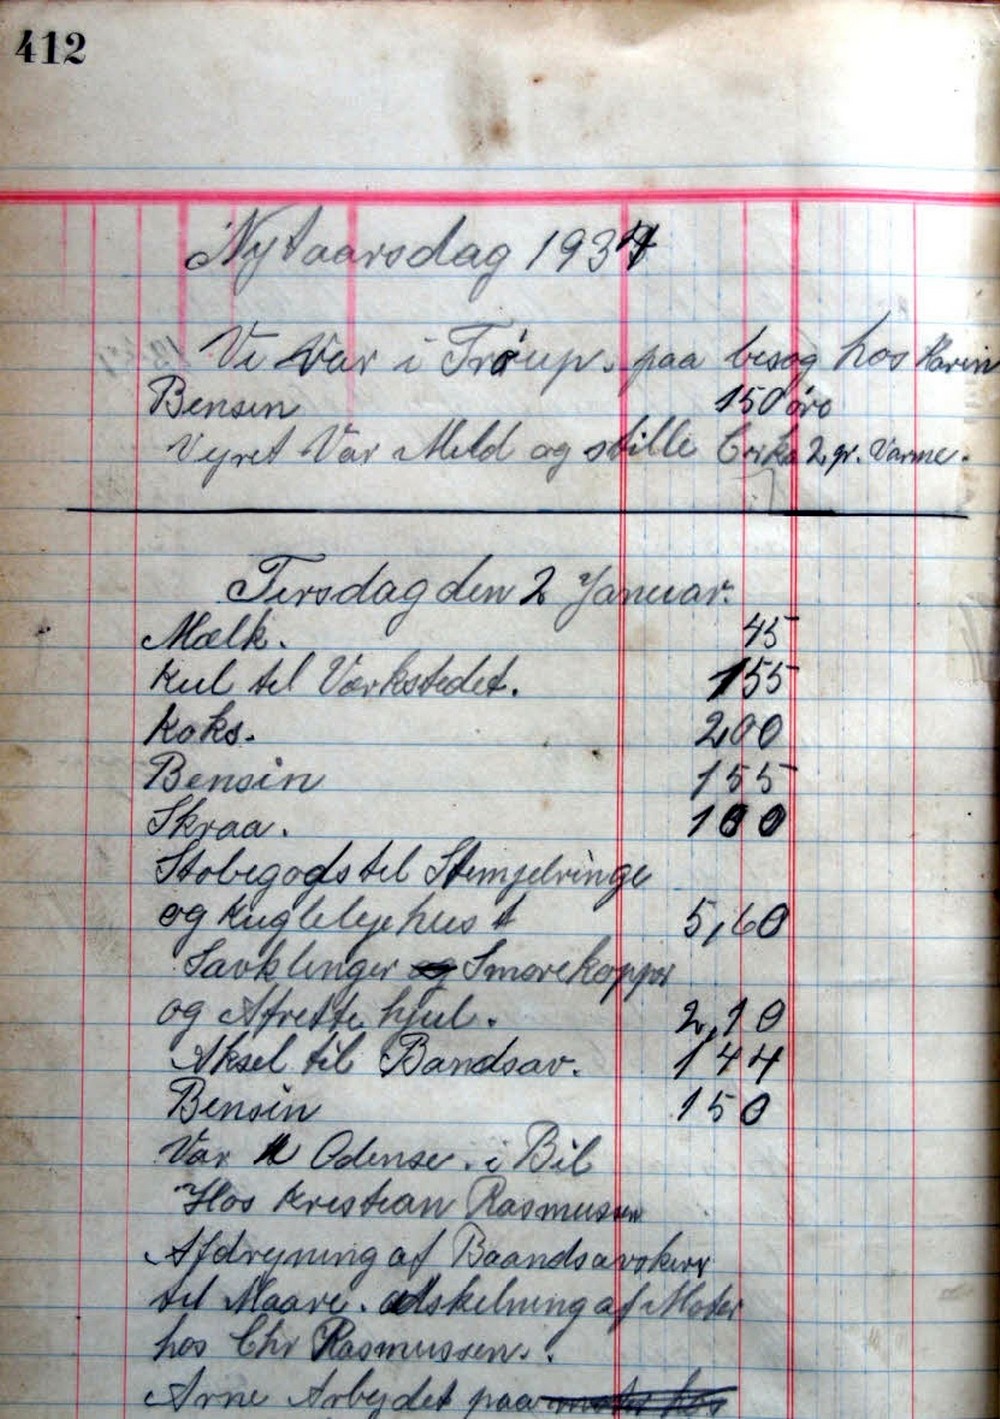 412
Nytaarsdag 1934
Vi Var i Trøup. paa besøg hos Karin
Bensin 150 øre
Vejret Var Meld og stille Cirka 2 gr. Varme.
Tirsdag den 2 Januar.
Mælk. 45
Kul til Værkstedet. 155
Koks. 200
Bensin 155
Skraa. 100
Støbegods til Stempelringe
og Kuglelejehus 5,60
Savklinger og Smørekopper
og Afrette hjul. 2,10
Aksel til Bandsav. 144
Bensin 150
Var Odense. i Bil
Hos Kristian Rasmussen
Afdrejning af Baandsavskiver
til Maare. adskelning af Motor
hos Chr Rasmussen.
Arne Arbejdet paa motor hos